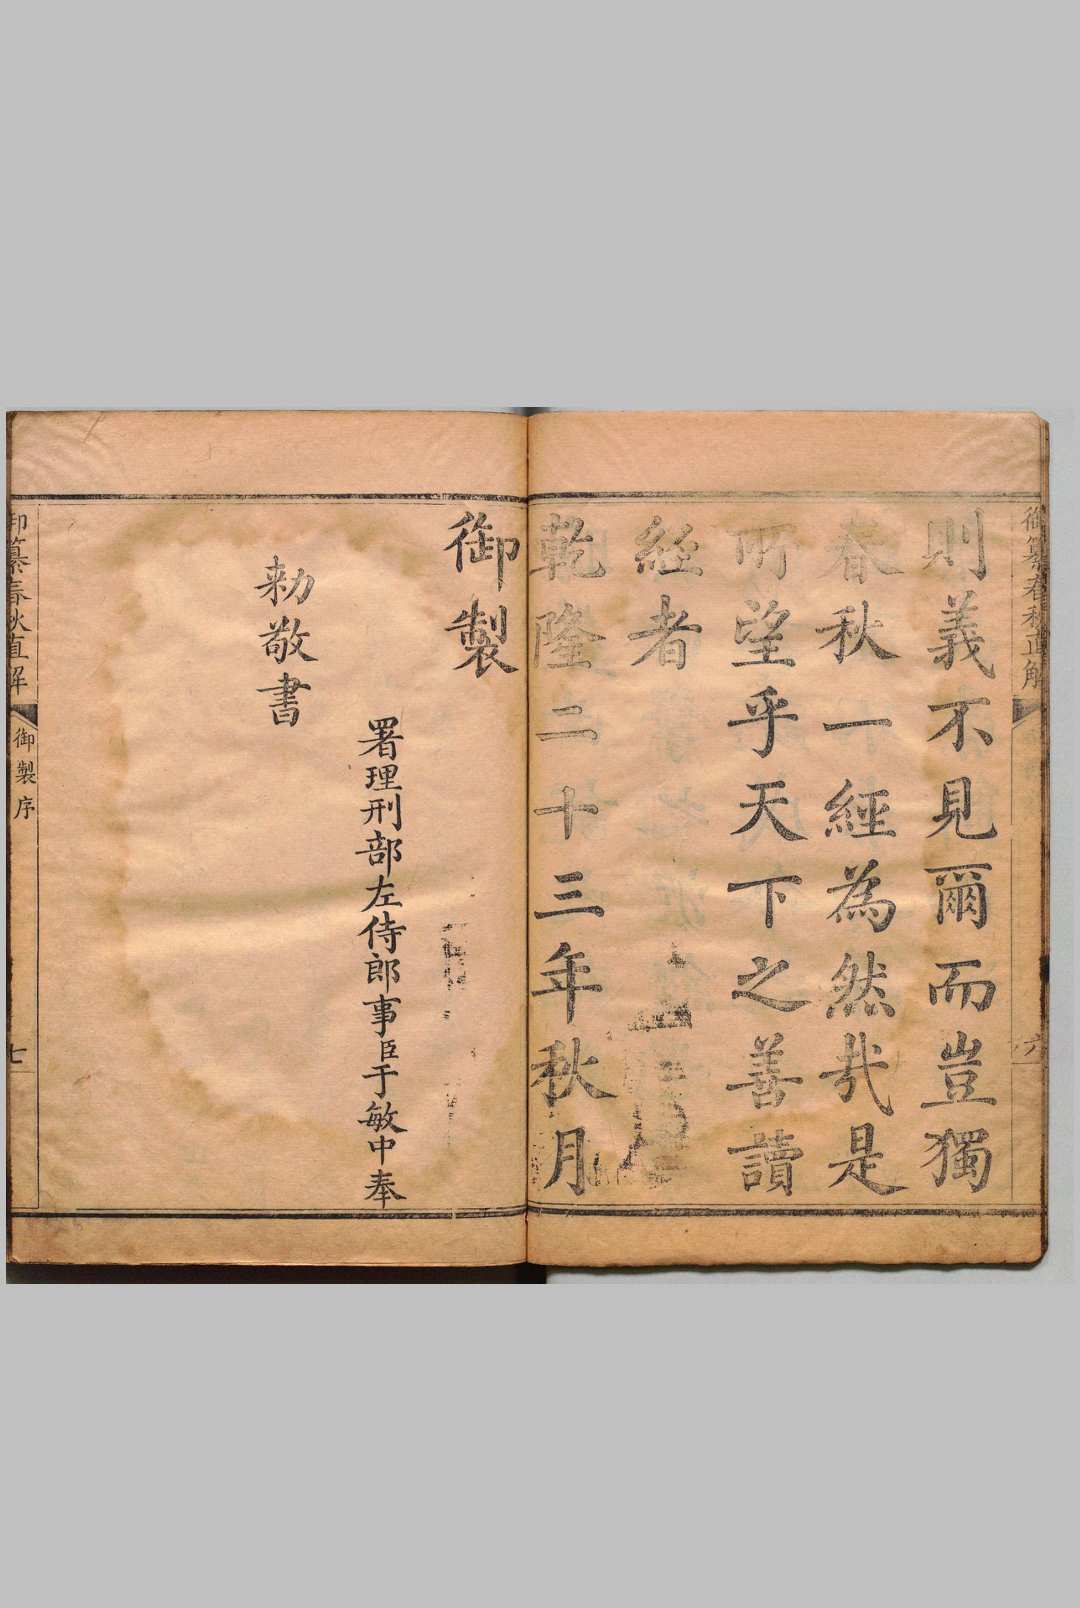 御纂春秋直解
六
則義不見爾而豈獨
春秋一經為然哉是
所望乎天下之善讀
經者
乾隆二十三年秋月
御製
署理刑部左侍郎事臣于敏中奉
勅敬書
御纂春秋直解
御製序
七